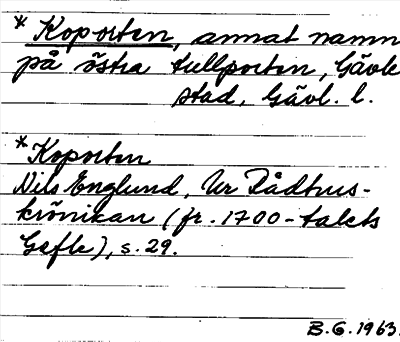 * Koporten, annat namn
på östra tullporten, Gävle
stad, Gävl. l.
* Koporten
Nils Englund, Ur Rådhus-
krönikan (fr. 1700-talets
Gefle), s. 29.
B.G. 1963.